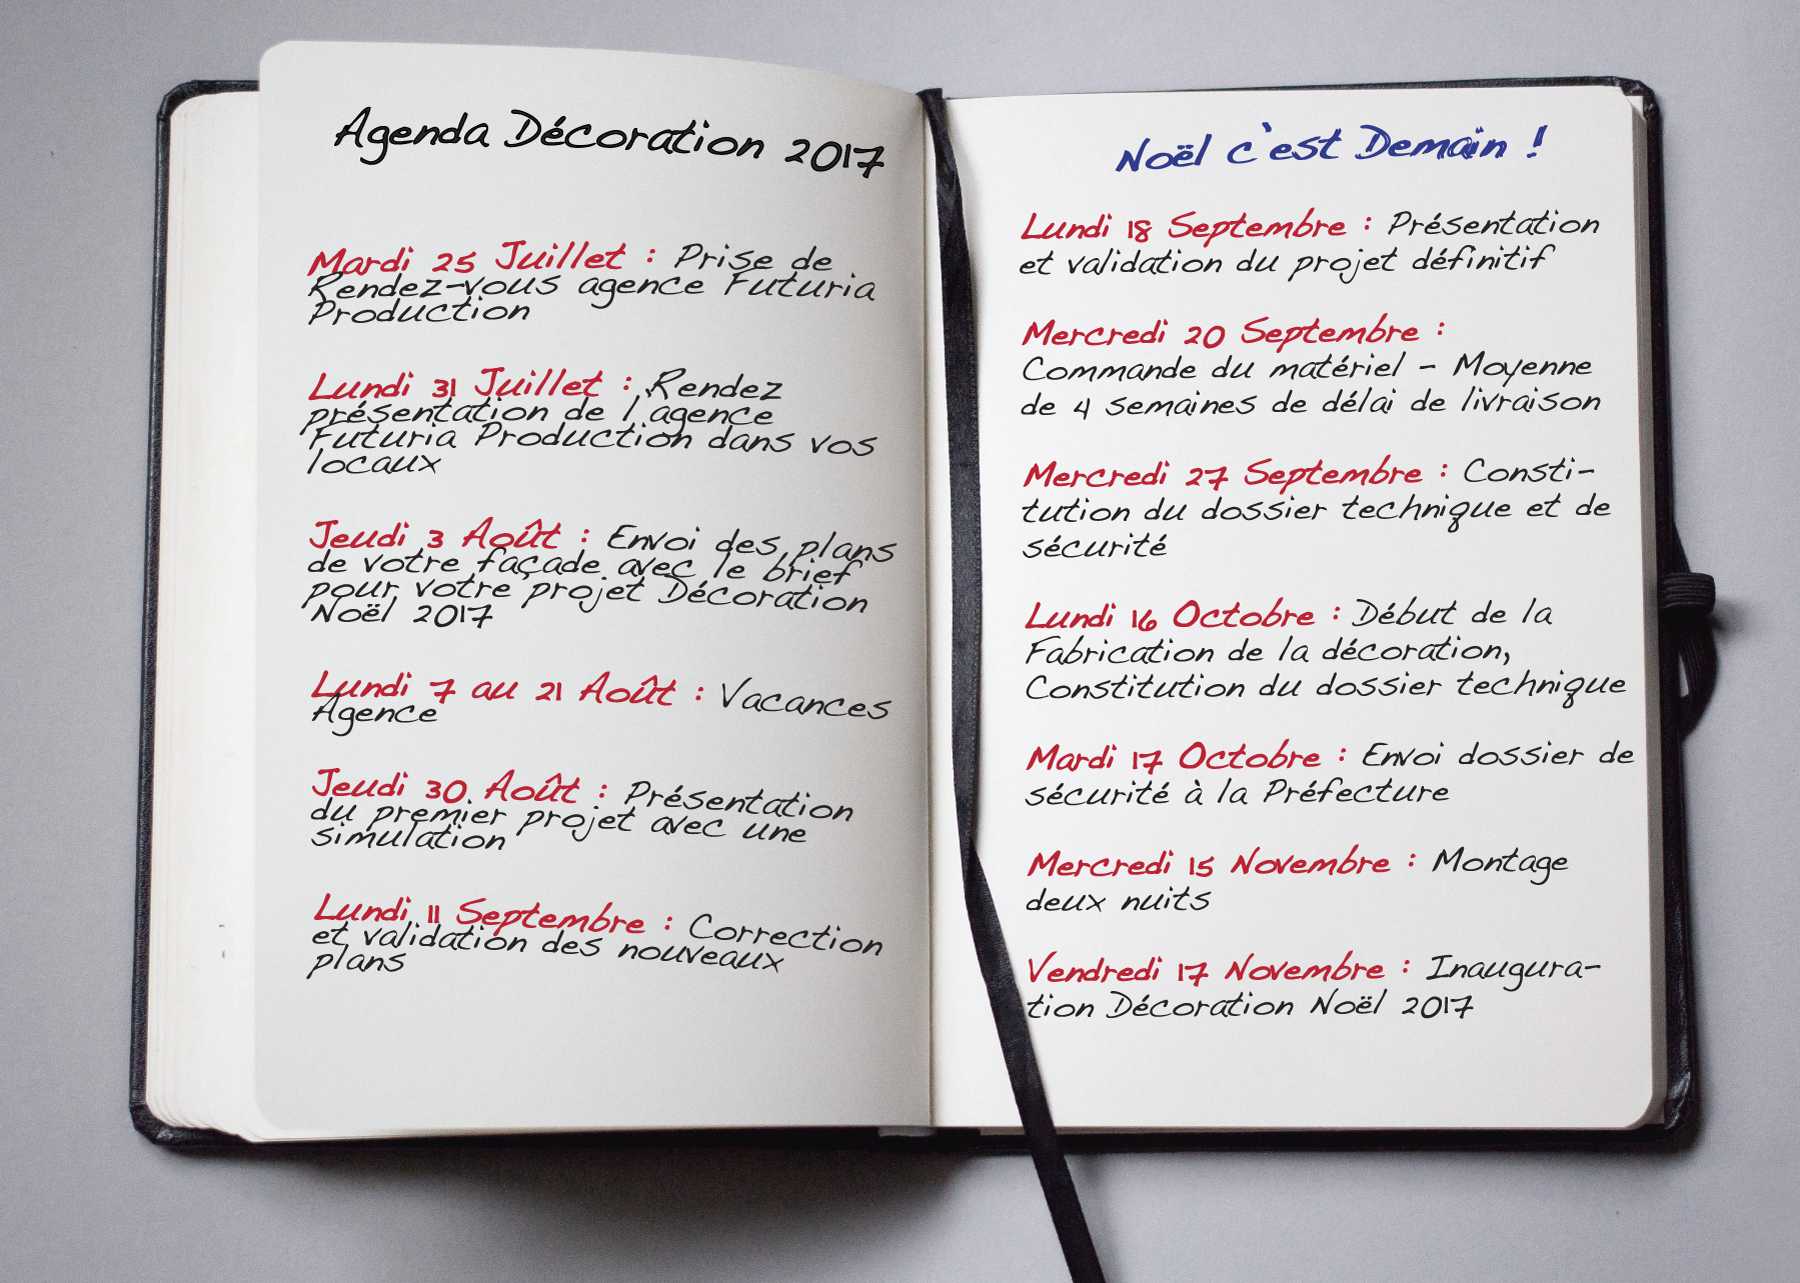 Agenda Décoration 2017
Mardi 25 Juillet : Prise de
Rendez-vous agence Futuria
Production
Lundi 31 Juillet : Rendez
présentation de l'agence
Futuria Production dans vos
locaux
Jeudi 3 Août : Envoi des plans
de votre façade avec le brief
pour votre projet Décoration
Noël 2017
Lundi 7 au 21 Août : Vacances
Agence
Jeudi 30 Août : Présentation
du premier projet avec une
simulation
Lundi 11 Septembre : Correction
et validation des nouveaux
plans
Noël c'est Demain !
Lundi 18 Septembre : Présentation
et validation du projet définitif
Mercredi 20 Septembre :
Commande du matériel - Moyenne
de 4 semaines de délai de livraison
Mercredi 27 Septembre : Consti-
tution du dossier technique et de
sécurité
Lundi 16 Octobre : Début de la
Fabrication de la décoration,
Constitution du dossier technique
Mardi 17 Octobre : Envoi dossier de
sécurité à la Préfecture
Mercredi 15 Novembre : Montage
deux nuits
Vendredi 17 Novembre : Inaugura-
tion Décoration Noël 2017